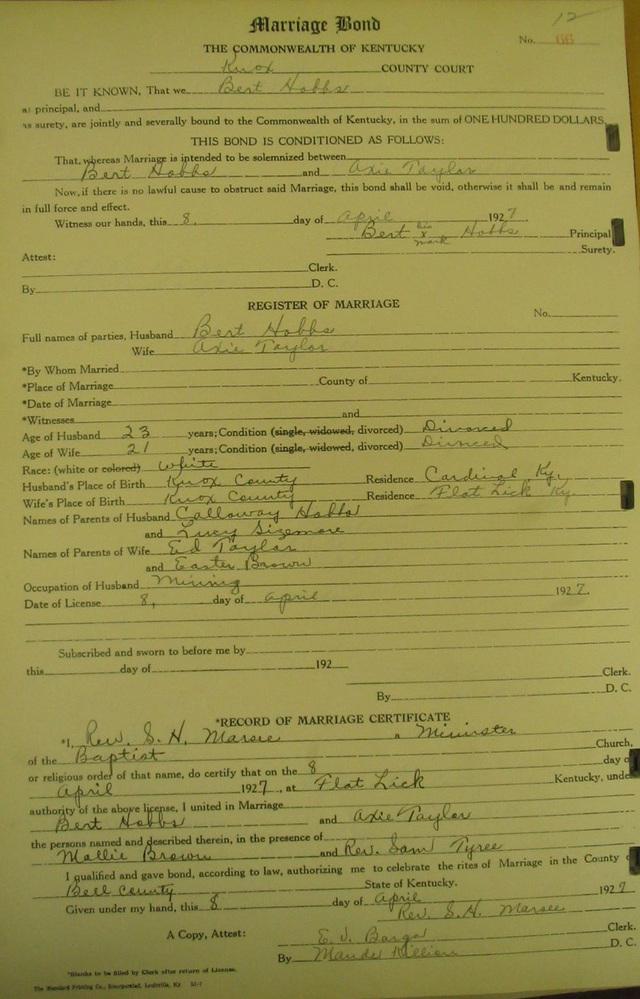 12
Marriage Bond
No. 66
THE COMMONWEALTH OF KENTUCKY
Knox COUNTY COURT
BE IT KNOWN, That we Bert Hobbs
as principal, and
as surety, are jointly and severally bound to the Commonwealth of Kentucky, in the sum of ONE HUNDRED DOLLARS.
THIS BOND IS CONDITIONED AS FOLLOWS:
That, whereas Marriage is intended to be solemnized between
Bert Hobbs and Axie Taylor
Now, if there is no lawful cause to obstruct said Marriage, this bond shall be void, otherwise it shall be and remain
in full force and effect.
Witness our hands, this 8. day of April 1927
Bert his x mark Hobbs Principal
Surety.
Attest:
Clerk.
By D. C.
REGISTER OF MARRIAGE
No.
Full names of parties, Husband Bert Hobbs
Wife Axie Taylor
*By Whom Married
*Place of Marriage County of Kentucky.
*Date of Marriage
*Witnesses and
Age of Husband 23 years; Condition (single, widowed, divorced) Divorced
Age of Wife 21 years; Condition (single, widowed, divorced) Divorced
Race: (white or colored) White
Husband's Place of Birth Knox County Residence Cardinal Ky.
Wife's Place of Birth Knox County Residence Flat Lick Ky.
Names of Parents of Husband Calloway Hobbs
and Lucy Sizemore
Names of Parents of Wife Ed Taylor
and Easter Brown
Occupation of Husband Mining
Date of License 8, day of April 1927.
Subscribed and sworn to before me by
this day of 192
Clerk.
By D. C.
*RECORD OF MARRIAGE CERTIFICATE
*I, Rev. S. H. Marsee a Minister
of the Baptist Church,
or religious order of that name, do certify that on the 8 day o
April 1927, at Flat Lick Kentucky, unde
authority of the above license, I united in Marriage
Bert Hobbs and Axie Taylor
the persons named and described therein, in the presence of
Mollie Brown and Rev. Sam Tyree
I qualified and gave bond, according to law, authorizing me to celebrate the rites of Marriage in the County o
Bell County State of Kentucky.
Given under my hand, this 8 day of April 1927
Rev. S. H. Marsee
A Copy, Attest: E. J. Clerk.
By Maude Killion D. C.
*Blanks to be filled by Clerk after return of License.
The Standard Printing Co., Incorporated, Louisville, Ky